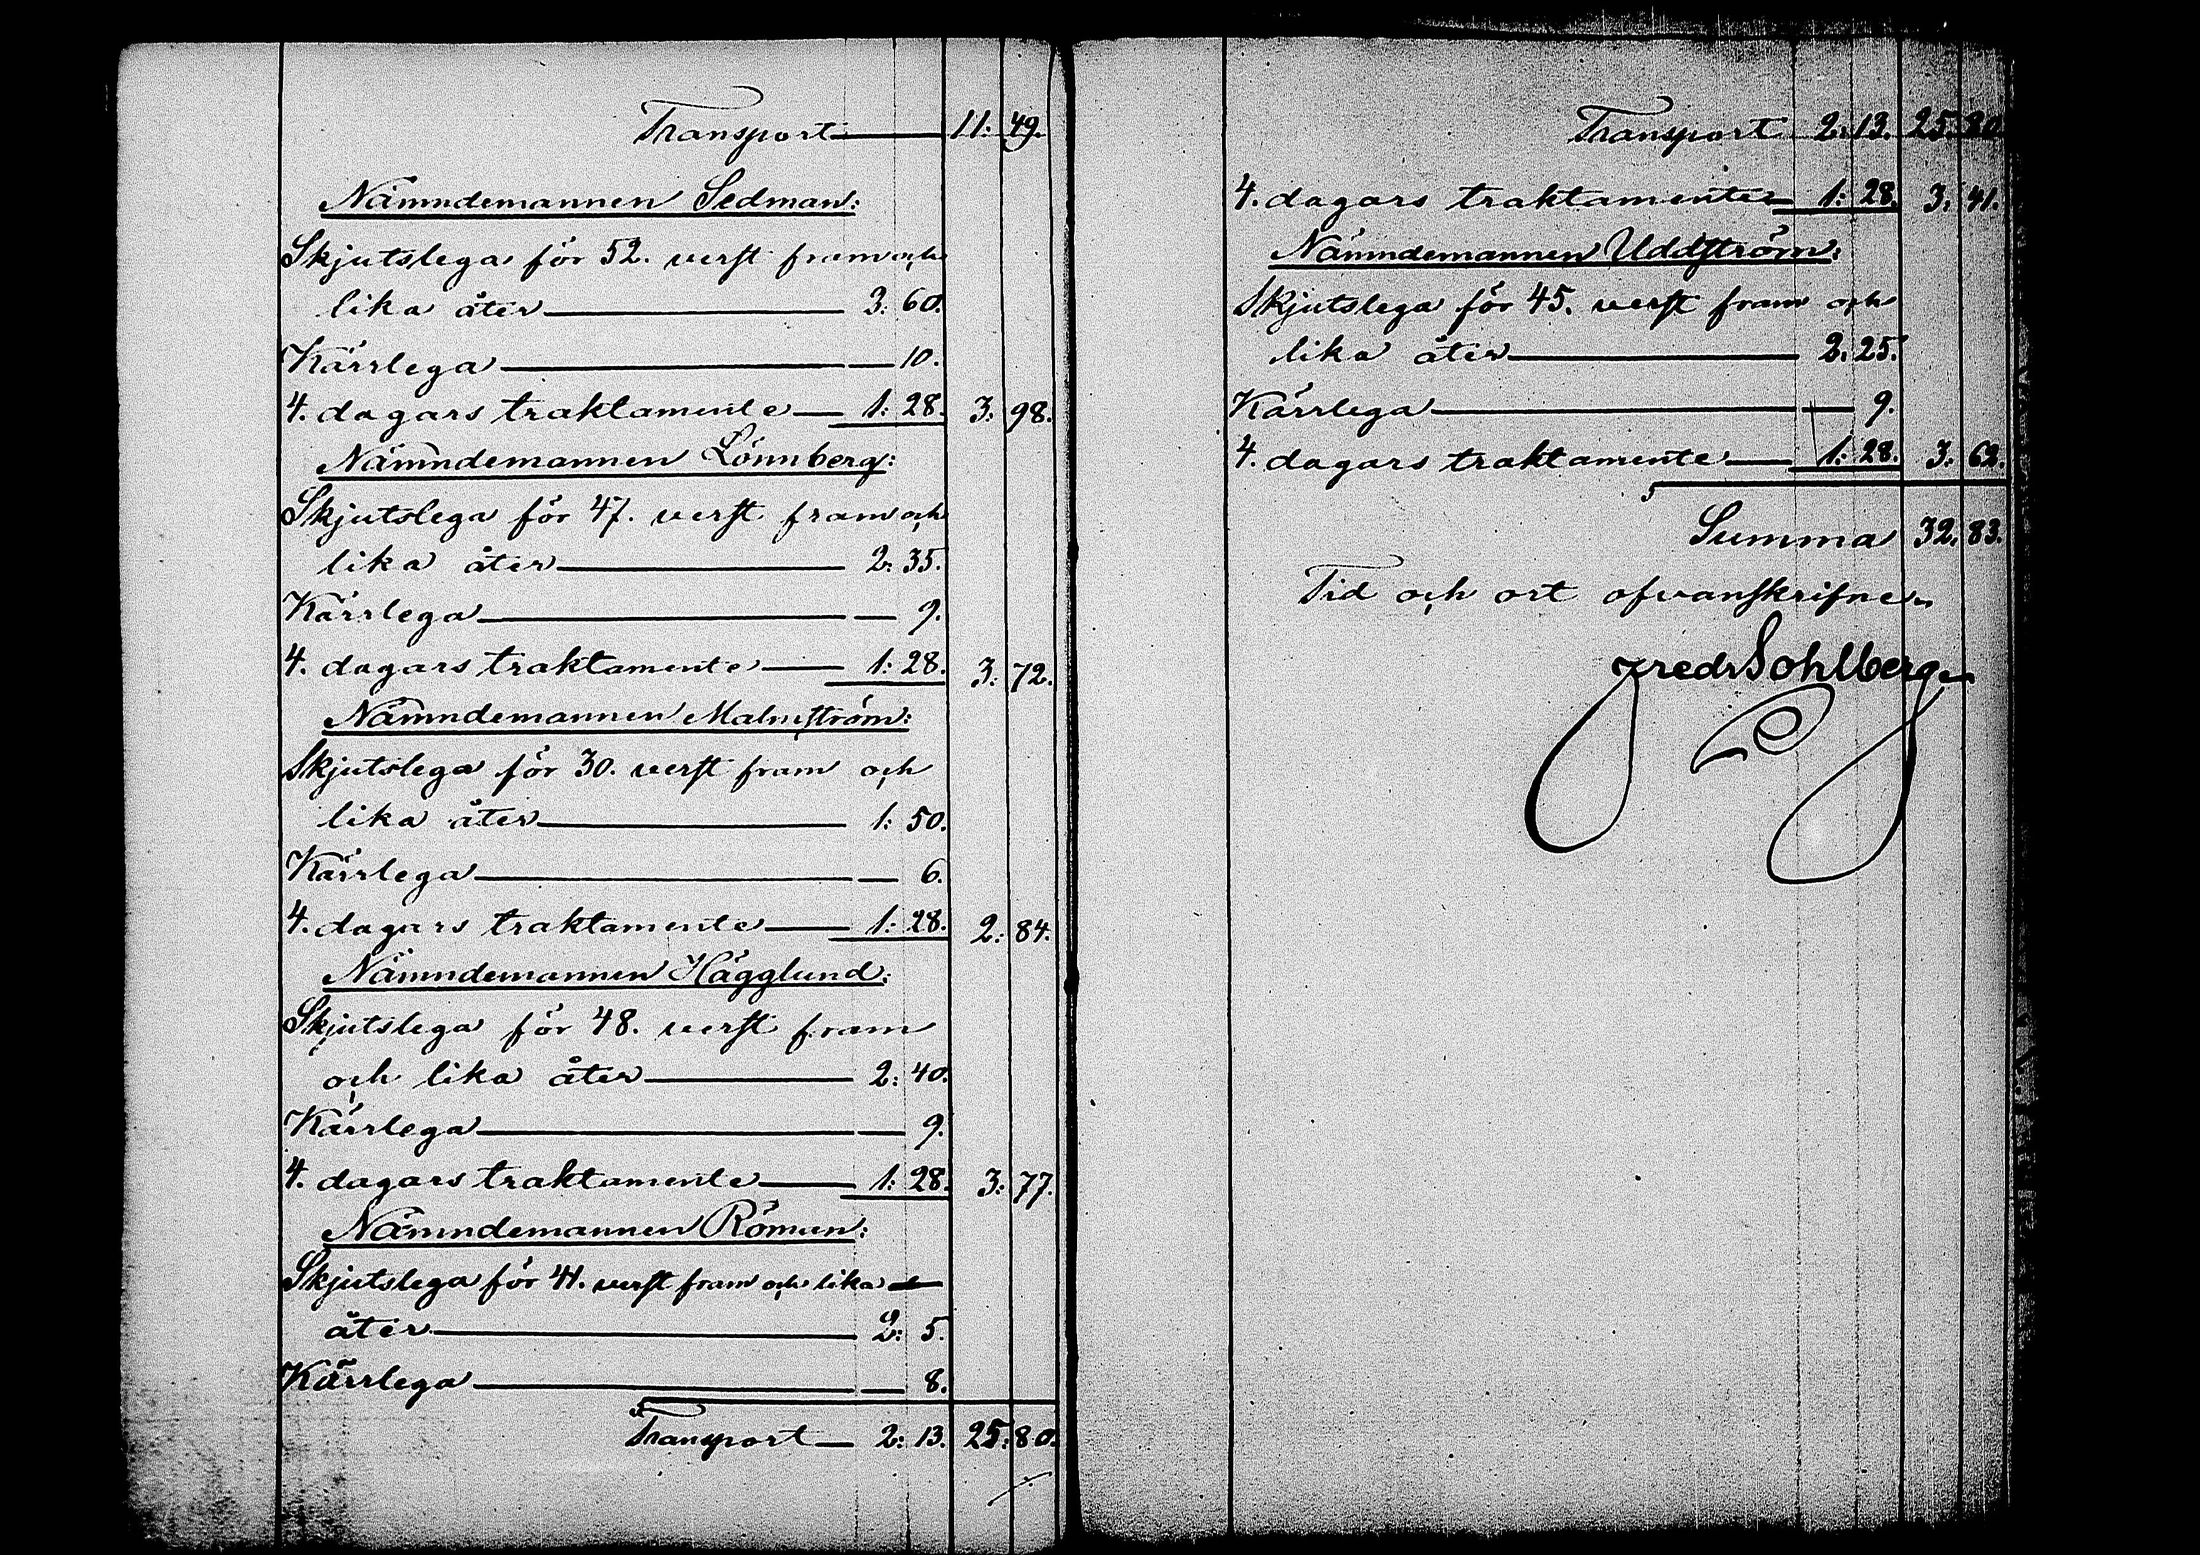 Transport 11: 49.
Nämndemannen Sedman:
Skjutslega för 52. verst fram och
lika åter 3: 60.
Kärrlega 10.
4. dagars traktamente 1: 28. 3: 98.
Nämndemannen Lönnberg:
Skjutslega för 47. verst fram och
lika åter 2: 35.
Kärrlega 9.
4. dagars traktamente 1: 28. 3: 72.
Nämndemannen Malmström:
Skjutslega för 30. verst fram och
lika åter 1: 50.
Kärrlega 6.
4. dagars traktamente 1: 28. 2: 84.
Nämndemannen Hägglund:
Skjutslega för 48. verst fram
och lika åter 2: 40.
Kärrlega 9.
4. dagars traktamente 1: 28. 3: 77.
Nämndemannen Röman:
Skjutslega för 41. verst fram och lika
åter 2: 5.
Kärrlega 8.
Transport 2: 13. 25: 80.
Transport 2: 13. 25: 80.
4. dagars traktamente 1: 28. 3: 41.
Nämndemannen Uddström:
Skjutslega för 45. verst fram och
lika åter 2: 25.
Kärrlega 9.
4. dagars traktamente 1: 28. 3: 62.
Summa 32. 83.
Tid och ort ofvanskrifne.
Fredr Sohlberg